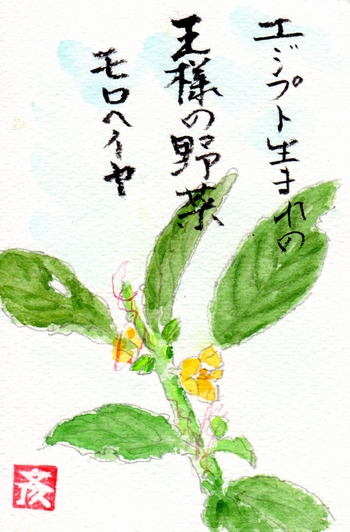 エジプト生まれの
王様の野菜
モロヘイヤ